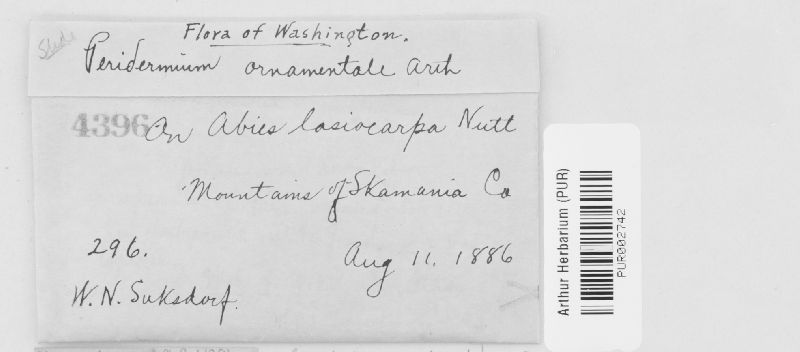 Slide
Flora of Washington.
Peridermium ornamentale Arth
4396 On Abies lasiocarpa Nutt
Mountains of Skamania Co
296. Aug 11. 1886
W. N. Suksdorf.
Arthur Herbarium (PUR)
PUR002742